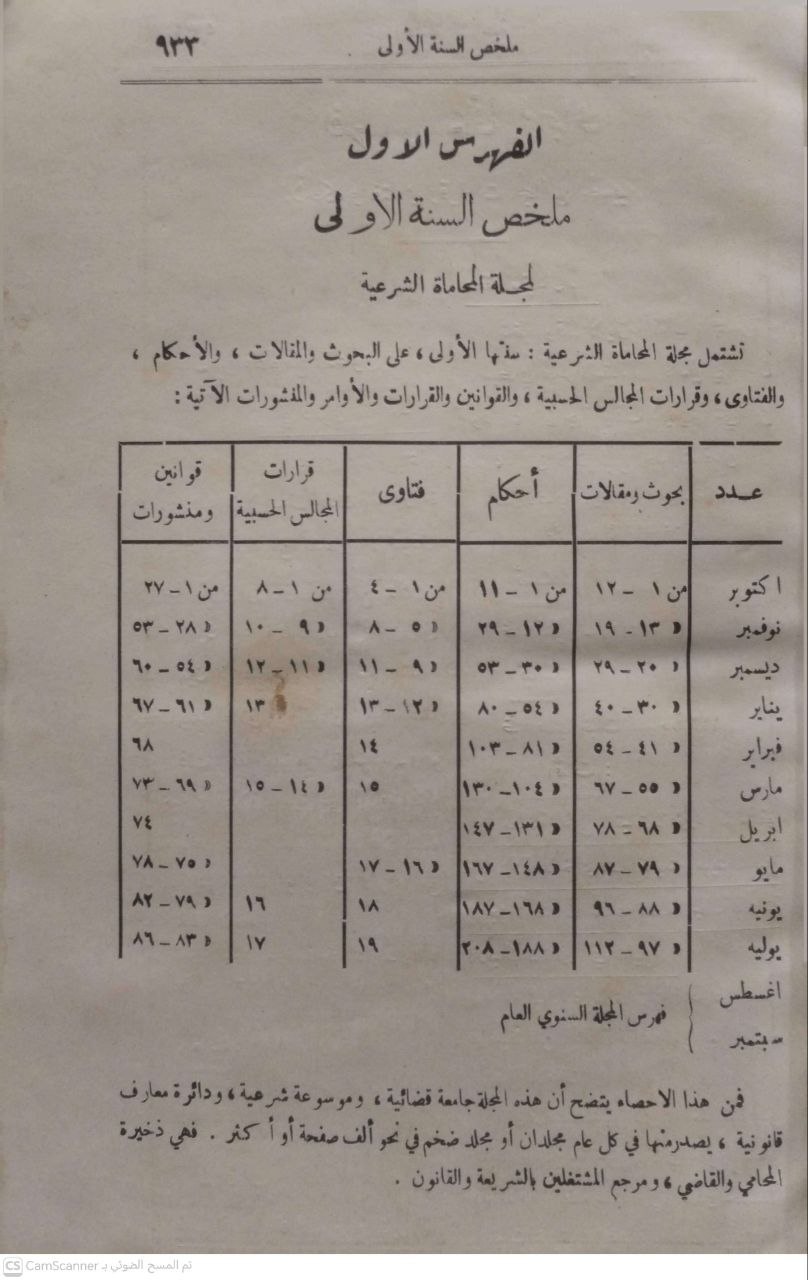 ملخص السنة الأولى ٩٣٣
الفهرس الاول
ملخص السنة الاولى
لمجلة المحاماة الشرعية
تشتمل مجلة المحاماة الشرعية : سنتها الأولى ، على البحوث والمقالات ، والأحكام ،
والفتاوى ، وقرارات المجالس الحسبية ، والقوانين والقرارات والأوامر والمنشورات الآتية :
عدد بحوث ومقالات أحكام فتاوى قرارات المجالس الحسبية قوانين ومنشورات
اكتوبر من ١ – ١٢ من ١ – ١١ من ١ – ٤ من ١ – ٨ من ١ – ٢٧
نوفمبر » ١٣ – ١٩ » ١٢ – ٢٩ » ٥ – ٨ » ٩ – ١٠ » ٢٨ – ٥٣
ديسمبر » ٢٠ – ٢٩ » ٣٠ – ٥٣ » ٩ – ١١ » ١١ – ١٢ » ٥٤ – ٦٠
يناير » ٣٠ – ٤٠ » ٥٤ – ٨٠ » ١٢ – ١٣ ١٣ » ٦١ – ٦٧
فبراير » ٤١ – ٥٤ » ٨١ – ١٠٣ ١٤ ٦٨
مارس » ٥٥ – ٦٧ » ١٠٤ – ١٣٠ ١٥ » ١٤ – ١٥ » ٦٩ – ٧٣
ابريل » ٦٨ – ٧٨ » ١٣١ – ١٤٧ ٧٤
مايو » ٧٩ – ٨٧ » ١٤٨ – ١٦٧ » ١٦ – ١٧ » ٧٥ – ٧٨
يونيه » ٨٨ – ٩٦ » ١٦٨ – ١٨٧ ١٨ ١٦ » ٧٩ – ٨٢
يوليه » ٩٧ – ١١٢ » ١٨٨ – ٢٠٨ ١٩ ١٧ » ٨٣ – ٨٦
اغسطس
فهرس المجلة السنوي العام
سبتمبر
فمن هذا الاحصاء يتضح أن هذه المجلة جامعة قضائية ، وموسوعة شرعية ، ودائرة معارف
قانونية ، يصدر منها في كل عام مجلدان أو مجلد ضخم في نحو ألف صفحة أو أكثر . فهي ذخيرة
المحامي والقاضي ، ومرجع المشتغلين بالشريعة والقانون .
تم المسح الضوئي بـ CamScanner
CS